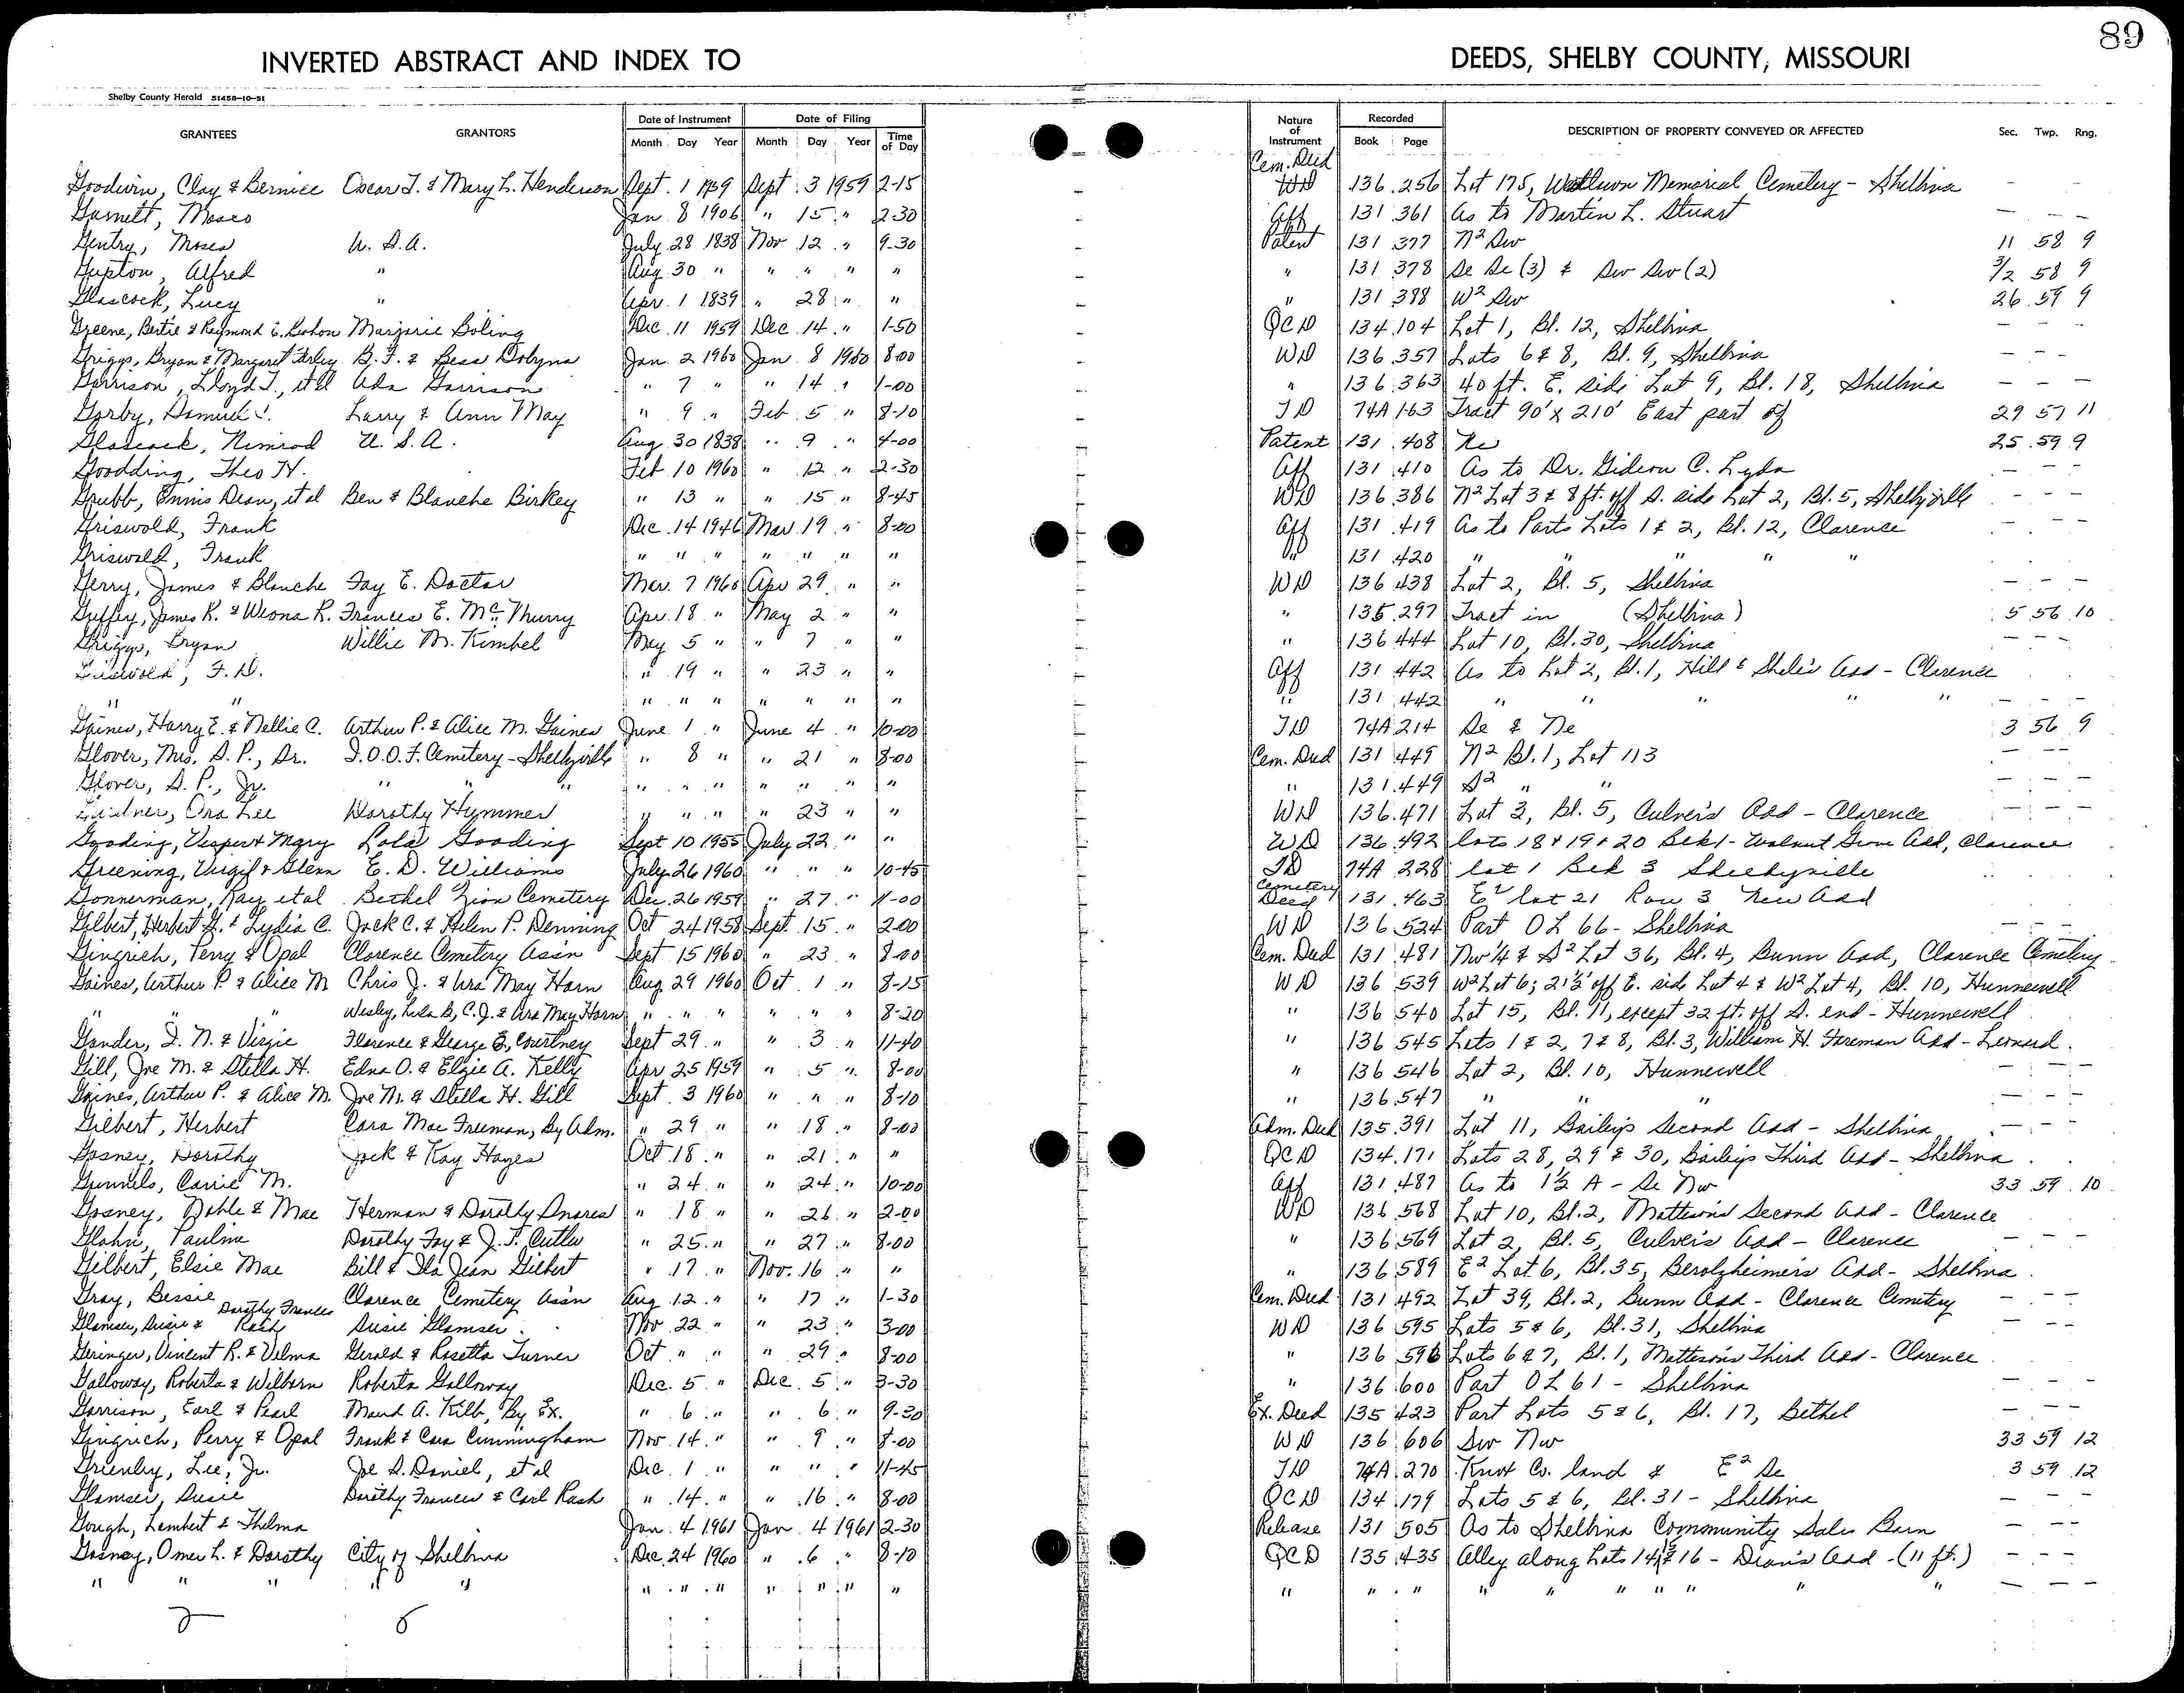 89
INVERTED ABSTRACT AND INDEX TO DEEDS, SHELBY COUNTY, MISSOURI
Shelby County Herald 51458-10-51
GRANTEES GRANTORS Date of Instrument Date of Filing Nature of Instrument Recorded DESCRIPTION OF PROPERTY CONVEYED OR AFFECTED Sec. Twp. Rng.
Month Day Year Month Day Year Time of Day Book Page
Cem. Deed
Goodwin, Clay & Bernice Oscar T. & Mary L. Henderson Sept. 1 1959 Sept. 3 1959 2-15 WD 136 256 Lot 175, Memorial Cemetery - Shelbina - -
Garnett, Mosco Jan 8 1906 " 15 " 2-30 Aff 131 361 As to Martin L. Stuart — — —
Gentry, Moses U. S. A. July 28 1838 Nov 12 " 9-30 Patent 131 377 N2 Sw 11 58 9
Gupton, Alfred " Aug 30 " " " " " " 131 378 Se Se (3) & Sw Sw (2) 3/2 58 9
Glascock, Lucy " Apr. 1 1839 " 28 " " " 131 388 W2 Sw 26 59 9
Greene, Bertie & Raymond E. Marjorie Boling Dec 11 1959 Dec. 14 " 1-50 QCD 134 104 Lot 1, Bl. 12, Shelbina — — —
Griggs, Bryan & Margaret B. F. & Bess Dobyns Jan. 2 1960 Jan 8 1960 8-00 WD 136 357 Lots 6 & 8, Bl. 9, Shelbina — — —
Garrison, Lloyd T., et al Ada Garrison " 7 " " 14 " 1-00 " 136 363 40 ft. E. side Lot 9, Bl. 18, Shelbina — — —
Gorby, Samuel J. Larry & Ann May " 9 " Feb. 5 " 8-10 TD 74A 163 Tract 90' x 210' East part of 29 57 11
Glascock, Nimrod U. S. A. Aug 30 1838 " 9 " 4-00 Patent 131 408 Ne 25 59 9
Goodding, Theo H. Feb 10 1960 " 12 " 2-30 Aff 131 410 As to Dr. Gideon C. Lyda — — —
Grubb, Ennis Dean, et al Ben & Blanche Birkey " 13 " " 15 " 8-45 WD 136 386 N2 Lot 3 & 8 ft. off S. side Lot 2, Bl. 5, Shelbyville - - -
Griswold, Frank Dec. 14 1946 Mar 19 " 8-00 Aff 131 419 As to Parts Lots 1 & 2, Bl. 12, Clarence - — —
Griswold, Frank " " " " " " " " 131 420 " " " " "
Gerry, James & Blanche Fay E. Doctor Mar. 7 1960 Apr 29 " " WD 136 438 Lot 2, Bl. 5, Shelbina — — —
Guffey, James R. & Weona R. Frances E. McMurry Apr. 18 " May 2 " " " 135 297 Tract in (Shelbina) 5 56 10
Griggs, Bryan Willie M. Kimbel May 5 " " 7 " " " 136 444 Lot 10, Bl. 30, Shelbina — — —
Griswold, F. D. " 19 " " 23 " " Aff 131 442 As to Lot 2, Bl. 1, Hill & Add - Clarence
" " " " " " " " " " 131 442 " " " " " - — —
Gaines, Harry E. & Nellie C. Arthur P. & Alice M. Gaines June 1 " June 4 " 10-00 TD 74A 214 Se & Ne 3 56 9
Glover, Mrs. S. P., Sr. I.O.O.F. Cemetery - Shelbyville " 8 " " 21 " 8-00 Cem. Deed 131 449 N2 Bl. 1, Lot 113 — — —
Glover, S. P., Jr. " " " " " " " " " " 131 449 S2 " " — — —
Ora Lee Dorothy Hummer " " " " 23 " " WD 136 471 Lot 2, Bl. 5, Culver's Add - Clarence — — —
Gooding, Vesper & Mary Lola Gooding Sept 10 1955 July 22 " " WD 136 492 lots 18 & 19 & 20 Blk 1 - Walnut Grove Add, Clarence
Greening, Virgil & Glenn E. D. Williams July 26 1960 " " " 10-45 TD 74A 228 lot 1 Blk 3 Shelbyville
Gonnerman, Ray et al Bethel Zion Cemetery Dec. 26 1959 " 27 " 11-00 Cemetery Deed 131 463 E2 lot 21 Row 3 New Add
Gilbert, Herbert G. & Lydia C. Jack C. & Helen P. Denning Oct 24 1958 Sept. 15 " 2-00 WD 136 524 Part OL 66 - Shelbina — — —
Gingrich, Perry & Opal Clarence Cemetery Ass'n Sept 15 1960 " 23 " 8-00 Cem. Deed 131 481 Nw 1/4 & S2 Lot 36, Bl. 4, Bunn Add, Clarence Cemetery
Gaines, Arthur P. & Alice M Chris J. & Ara May Horn Aug 29 1960 Oct 1 " 8-15 WD 136 539 W2 Lot 6; 21½' off E. side Lot 4 & W2 Lot 4, Bl. 10, Hunnewell
" " " Wesley, Lula B, C. J. & Ara May Horn " " " " " " 8-20 " 136 540 Lot 15, Bl. 11, except 32 ft. off S. end - Hunnewell
Gander, I. N. & Virgie Florence & George E. Courtney Sept 29 " " 3 " 11-40 " 136 545 Lots 1 & 2, 7 & 8, Bl. 3, William H. Foreman Add - Leonard
Gill, Joe M. & Stella H. Edna O. & Elgie A. Kelly Apr 25 1959 " 5 " 8-00 " 136 546 Lot 2, Bl. 10, Hunnewell — — —
Gaines, Arthur P. & Alice M. Joe M. & Stella H. Gill Sept. 3 1960 " " " 8-10 " 136 547 " " " — — —
Gilbert, Herbert Cara Mae Freeman, By Adm. " 29 " " 18 " 8-00 Adm. Deed 135 391 Lot 11, Bailey's Second Add - Shelbina — — —
Gosney, Dorothy Jack & Kay Hayes Oct. 18 " " 21 " " QCD 134 171 Lots 28, 29 & 30, Bailey's Third Add - Shelbina
Gunnels, Carrie M. " 24 " " 24 " 10-00 Aff 131 487 As to 1½ A - Se Nw 33 59 10
Gosney, Noble & Mae Herman & Dorothy " 18 " " 26 " 2-00 WD 136 568 Lot 10, Bl. 2, Matteson's Second Add - Clarence
Glahn, Paulina Dorothy Fay & J. T. Cutler " 25 " " 27 " 8-00 " 136 569 Lot 2, Bl. 5, Culver's Add - Clarence — — —
Gilbert, Elsie Mae Bill & Ila Jean Gilbert " 17 " Nov. 16 " " " 136 589 E2 Lot 6, Bl. 35, Berolzheimer's Add - Shelbina
Gray, Bessie Clarence Cemetery Ass'n Aug 12 " " 17 " 1-30 Cem. Deed 131 492 Lot 39, Bl. 2, Bunn Add - Clarence Cemetery — — —
Glamser, Susie & Dorothy Frances Rash Susie Glamser Nov 22 " " 23 " 3-00 WD 136 595 Lots 5 & 6, Bl. 31, Shelbina — — —
Geringer, Vincent R. & Velma Gerald & Rosetta Turner Oct " " " 29 " 8-00 " 136 596 Lots 6 & 7, Bl. 1, Matteson's Third Add - Clarence
Galloway, Roberta & Wilborn Roberta Galloway Dec. 5 " Dec. 5 " 3-30 " 136 600 Part OL 61 - Shelbina — — —
Garrison, Earl & Pearl Maud A. Kilb, By Ex. " 6 " " 6 " 9-30 Ex. Deed 135 423 Part Lots 5 & 6, Bl. 17, Bethel — — —
Gingrich, Perry & Opal Frank & Cora Cunningham Nov 14 " " 9 " 8-00 WD 136 606 Sw Nw 33 59 12
Greenley, Lee, Jr. Joe S. Daniel, et al Dec. 1 " " " " 11-45 TD 74A 270 Knox Co. land & E2 Se 3 59 12
Glamser, Susie Dorothy Frances & Carl Rash " 14 " " 16 " 8-00 QCD 134 179 Lots 5 & 6, Bl. 31 - Shelbina — — —
Gough, Lambert & Thelma Jan. 4 1961 Jan. 4 1961 2-30 Release 131 505 As to Shelbina Community Sales Barn — — —
Gosney, Omer L. & Dorothy City of Shelbina Dec. 24 1960 " 6 " 8-10 QCD 135 435 Alley along Lots 14, 15 & 16 - Dean's Add - (11 ft.) — — —
" " " " " " " " " " " " " " " " " " " " " " " — — —